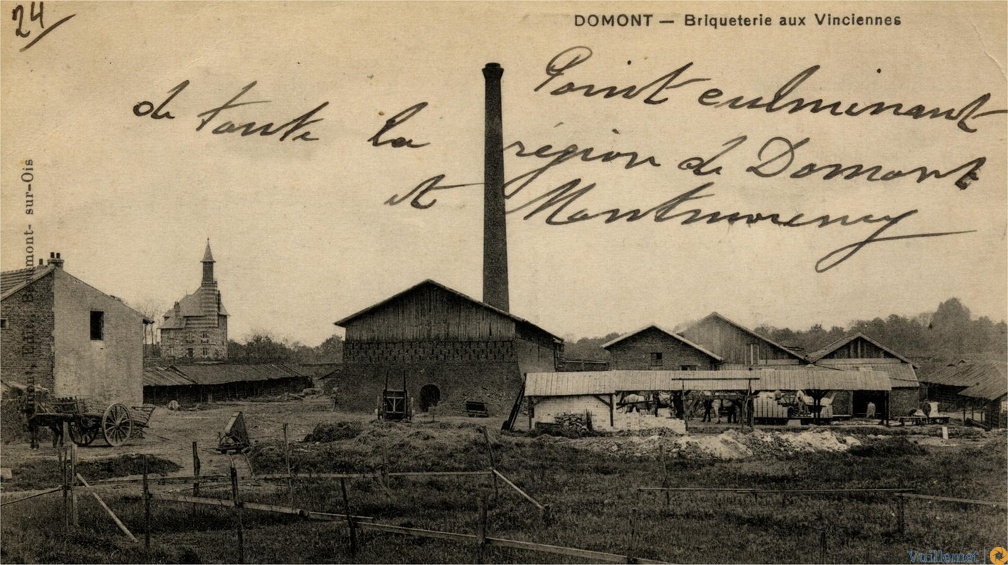 24
DOMONT — Briqueterie aux Vinciennes
Point culminant
de toute la région de Domont
et Montmorency
Edit. Beaumont-sur-Ois
Vuillemet